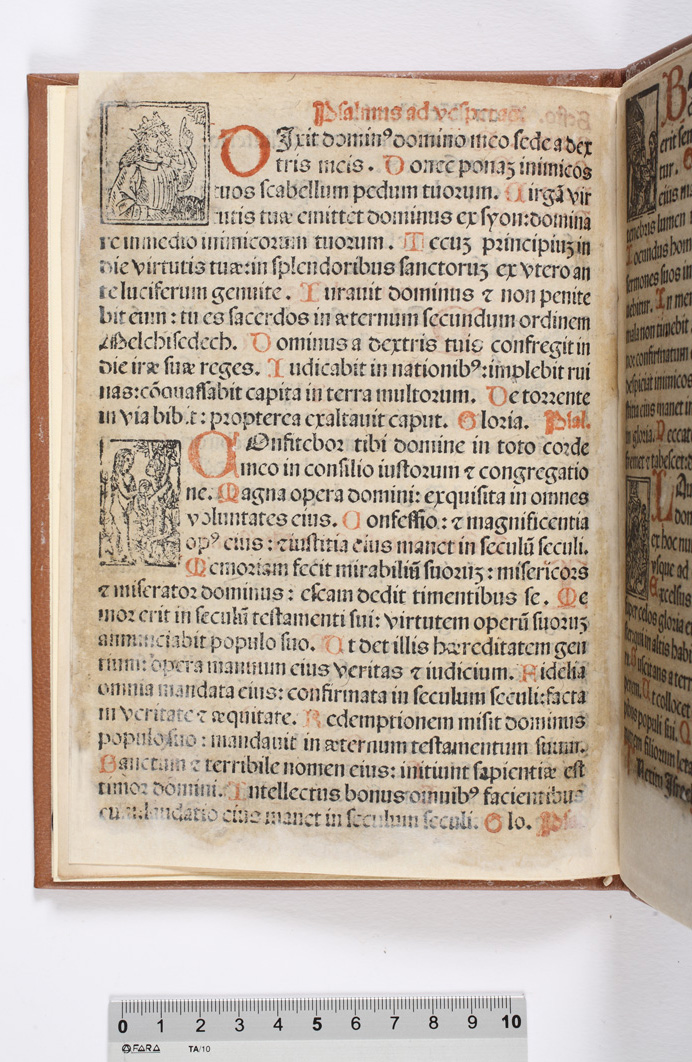 Psalmus ad vesperas.
DIxit domin⁹ domino meo sede a dex
tris meis. Donec ponaʒ inimicos
tuos scabellum pedum tuorum. Uirgã vir
tutis tuæ emittet dominus ex syon: domina
re in medio inimicorum tuorum. Tecuʒ principiuʒ in
die virtutis tuæ: in splendoribus sanctoruʒ ex vtero an
te luciferum genuite. Iurauit dominus ⁊ non penite
bit eum: tu es sacerdos in æternum secundum ordinem
Melchisedech. Dominus a dextris tuis confregit in
die iræ suæ reges. Iudicabit in nationib⁹: implebit rui
nas: cõquassabit capita in terra multorum. De torrente
in via bibit: propterea exaltauit caput. Gloria. Psal.
COnfitebor tibi domine in toto corde
meo in consilio iustorum ⁊ congregatio
ne. Magna opera domini: exquisita in omnes
voluntates eius. Confessio: ⁊ magnificentia
op⁹ eius: ⁊ iustitia eius manet in seculũ seculi.
Memoriam fecit mirabiliũ suoruʒ: misericors
⁊ miserator dominus: escam dedit timentibus se. Me
mor erit in seculũ testamenti sui: virtutem operũ suoruʒ
annunciabit populo suo. Ut det illis hæreditatem gen
tium: opera manuum eius veritas ⁊ iudicium. Fidelia
omnia mandata eius: confirmata in seculum seculi: facta
in veritate ⁊ æquitate. Redemptionem misit dominus
populo suo: mandauit in æternum testamentum suum.
Sanctum ⁊ terribile nomen eius: initium sapientiæ est
timor domini. Intellectus bonus omnib⁹ facientibus
eum: laudatio eius manet in seculum seculi. Glo. Psa.
erit sem
tur.
eius m
tenebris lumen
Iocundus hom
sermones suos in
In mem
mala non timebit
nec confirmatum
despiciat inimicos
manet in
in gloria. Peccato
fremet ⁊ tabescet: d
LAu
don
et hoc nu
vsque ad
Excelsus
super celos gloria e
in altis habi
Suscitans a terr
Ut collocet
populi sui.
filiorum leta
0 1 2 3 4 5 6 7 8 9 10
FARA TA/10